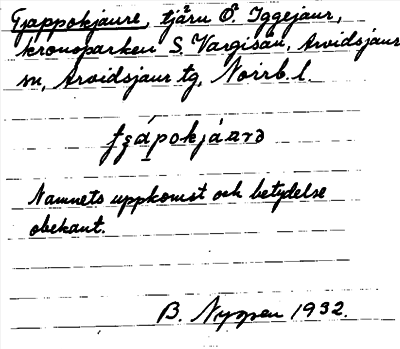 Gjappokjaure, tjärn Ö. Iggejaur,
kronoparken S. Vargisån, Arvidsjaur
sn, Arvidsjaur tg, Norrb. l.
Namnets uppkomst och betydelse
obekant.
B. Nygren 1932.